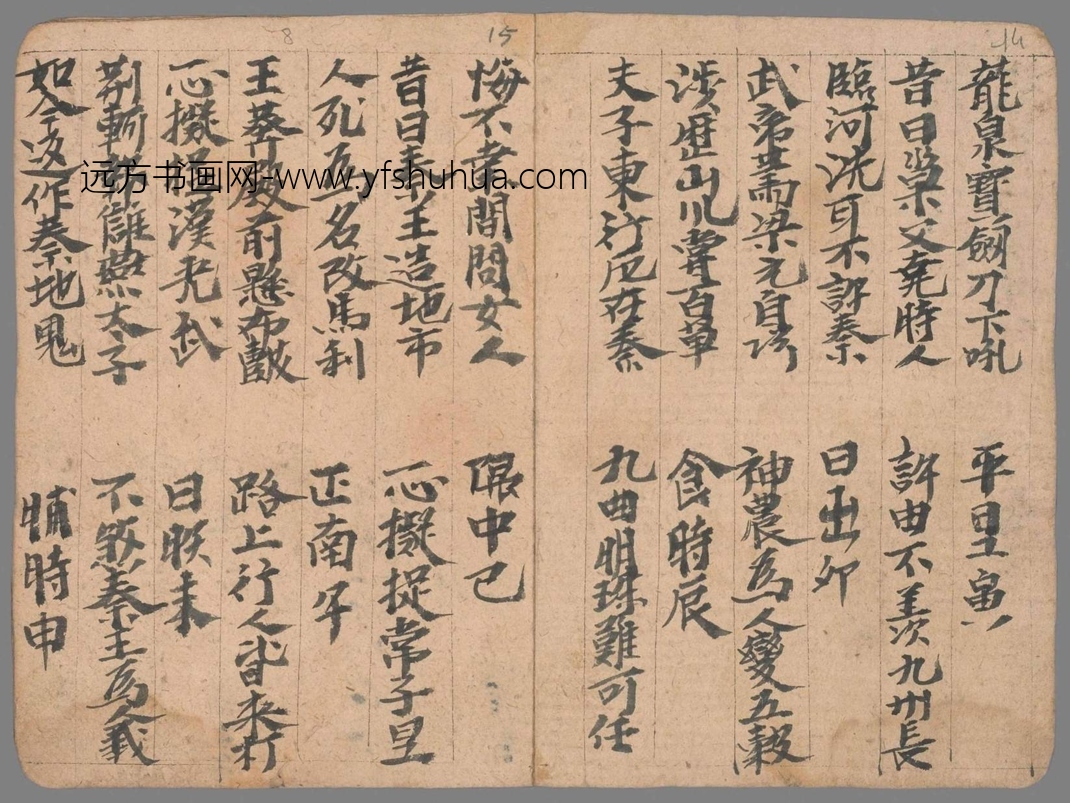 14
龍泉寶劍刀下吼 平里寅
昔日巢父堯時人 許由不羨九州長
臨河洗耳不許秦 日出卯
武帝蕭梁元自誇 神農為人變五穀
涉歷山川嘗百草 食時辰
夫子東行厄在秦 九曲明珠難可任
15
8
悔不桑間問女人 隅中巳
昔日秦王造地市 心擬捉常子里
人死為名改馬利 正南午
王莽殿前懸布皷 路上行人皆来打
心擬漢光武 日昳未
荊軻報讎燕太子 不煞秦王為人義
如今返作秦地鬼 晡時申
远方书画网-www.yfshuhua.com